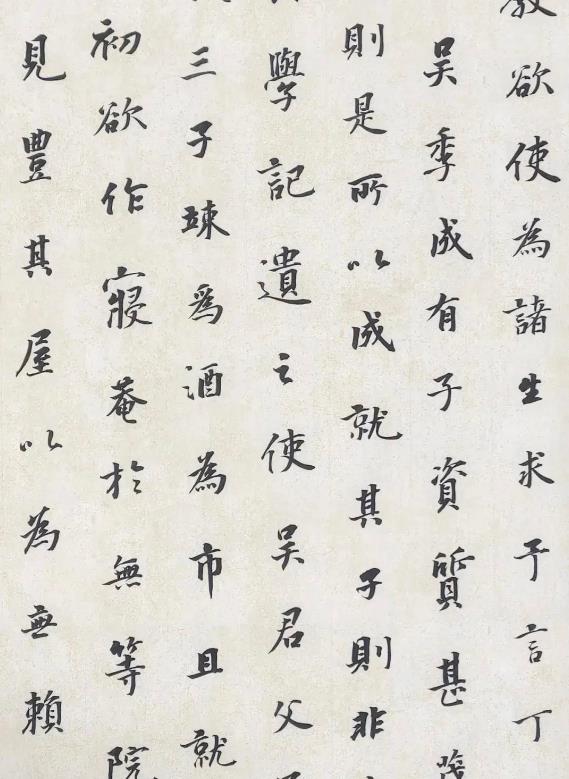 教欲使為諸生求予言丁
吳季成有子資質甚
則是所以成就其子則非
學記遺之使吳君父
三子竦爲酒為市且就
初欲作寢菴於無等院
見豐其屋以為無賴